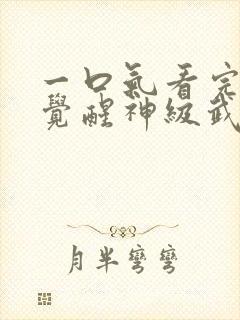 一口氣看完
覺醒神級武
月半彎彎